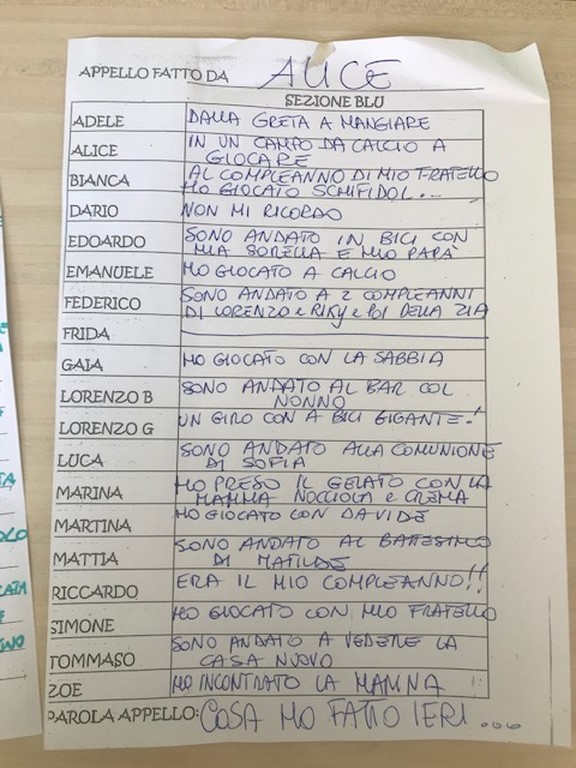 APPELLO FATTO DA ALICE
SEZIONE BLU
ADELE DALLA GRETA A MANGIARE
ALICE IN UN CAMPO DA CALCIO A
GIOCARE
BIANCA AL COMPLEANNO DI MIO FRATELLO
HO GIOCATO SCHIFIDOL...
DARIO NON MI RICORDO
EDOARDO SONO ANDATO IN BICI CON
MIA SORELLA E MIO PAPÀ
EMANUELE HO GIOCATO A CALCIO
FEDERICO SONO ANDATO A 2 COMPLEANNI
DI LORENZO e RIKY e POI DELLA ZIA
FRIDA
GAIA HO GIOCATO CON LA SABBIA
LORENZO B SONO ANDATO AL BAR COL
NONNO
LORENZO G UN GIRO CON A BICI GIGANTE!
LUCA SONO ANDATO ALLA COMUNIONE
DI SOFIA
MARINA HO PRESO IL GELATO CON LA
MAMMA NOCCIOLA e CREMA
MARTINA HO GIOCATO CON DAVIDE
MATTIA SONO ANDATO AL BATTESIMO
DI MATILDE
RICCARDO ERA IL MIO COMPLEANNO!!
SIMONE HO GIOCATO CON MIO FRATELLO
TOMMASO SONO ANDATO A VEDERE LA
CASA NUOVO
ZOE HO INCONTRATO LA MAMMA
PAROLA APPELLO: COSA HO FATTO IERI...